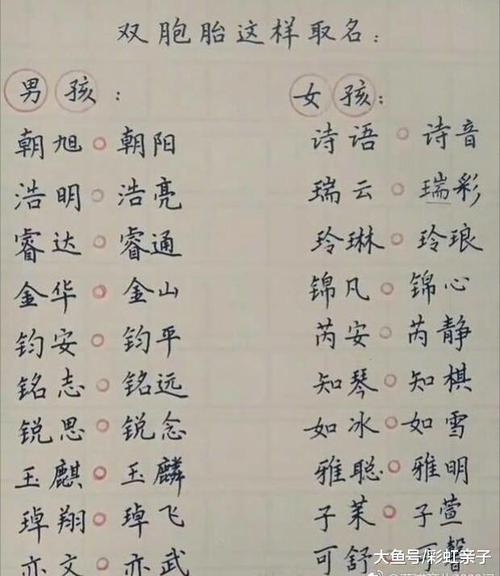 双胞胎这样取名：
男孩：
朝旭○朝阳
浩明○浩亮
睿达○睿通
金华○金山
钧安○钧平
铭志○铭远
锐思○锐念
玉麒○玉麟
琸翔○琸飞
亦文○亦武
女孩：
诗语○诗音
瑞云○瑞彩
玲琳○玲琅
锦凡○锦心
芮安○芮静
知琴○知棋
如冰○如雪
雅聪○雅明
子茉○子萱
可舒 馨
大鱼号/彩虹亲子